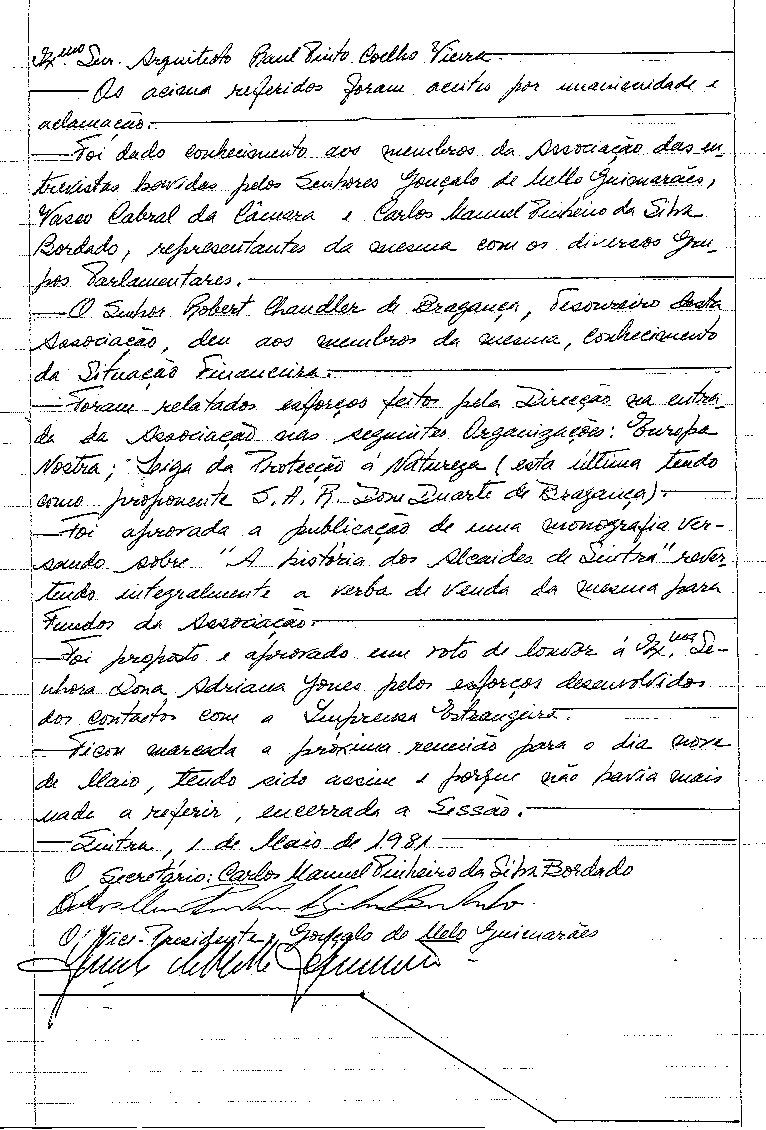 Ex.mo Snr. Arquitecto Raul Pinto Coelho Vieira.
Os acima referidos foram aceites por unanimidade e
aclamação.
Foi dado conhecimento aos membros da Associação das en-
trevistas havidas pelos Senhores Gonçalo de Mello Guimarães,
Vasco Cabral da Câmara e Carlos Manuel Pinheiro da Silva
Bordado, representantes da mesma com os diversos Gru-
pos Parlamentares.
O Senhor Robert Chandler de Bragança, Tesoureiro desta
Associação, deu aos membros da mesma, conhecimento
da Situação Financeira.
Foram relatados esforços feitos pela Direcção na entra-
da da Associação nas seguintes Organizações: Europa
Nostra; Liga da Protecção à Natureza (esta última tendo
como proponente S. A. R. Dom Duarte de Bragança).
Foi aprovada a publicação de uma monografia ver-
sando sobre "A história dos Alcaides de Sintra" rever-
tendo integralmente a verba de venda da mesma para
Fundos da Associação.
Foi proposto e aprovado um voto de louvor à Ex.ma Se-
nhora Dona Adriana Jones pelos esforços desenvolvidos
dos contactos com a Imprensa Estrangeira.
Ficou marcada a próxima reunião para o dia nove
de Maio, tendo sido assim e porque não havia mais
nada a referir, encerrada a Sessão.
Sintra, 1 de Maio de 1981
O Secretário: Carlos Manuel Pinheiro da Silva Bordado
O Vice-Presidente, Gonçalo de Melo Guimarães